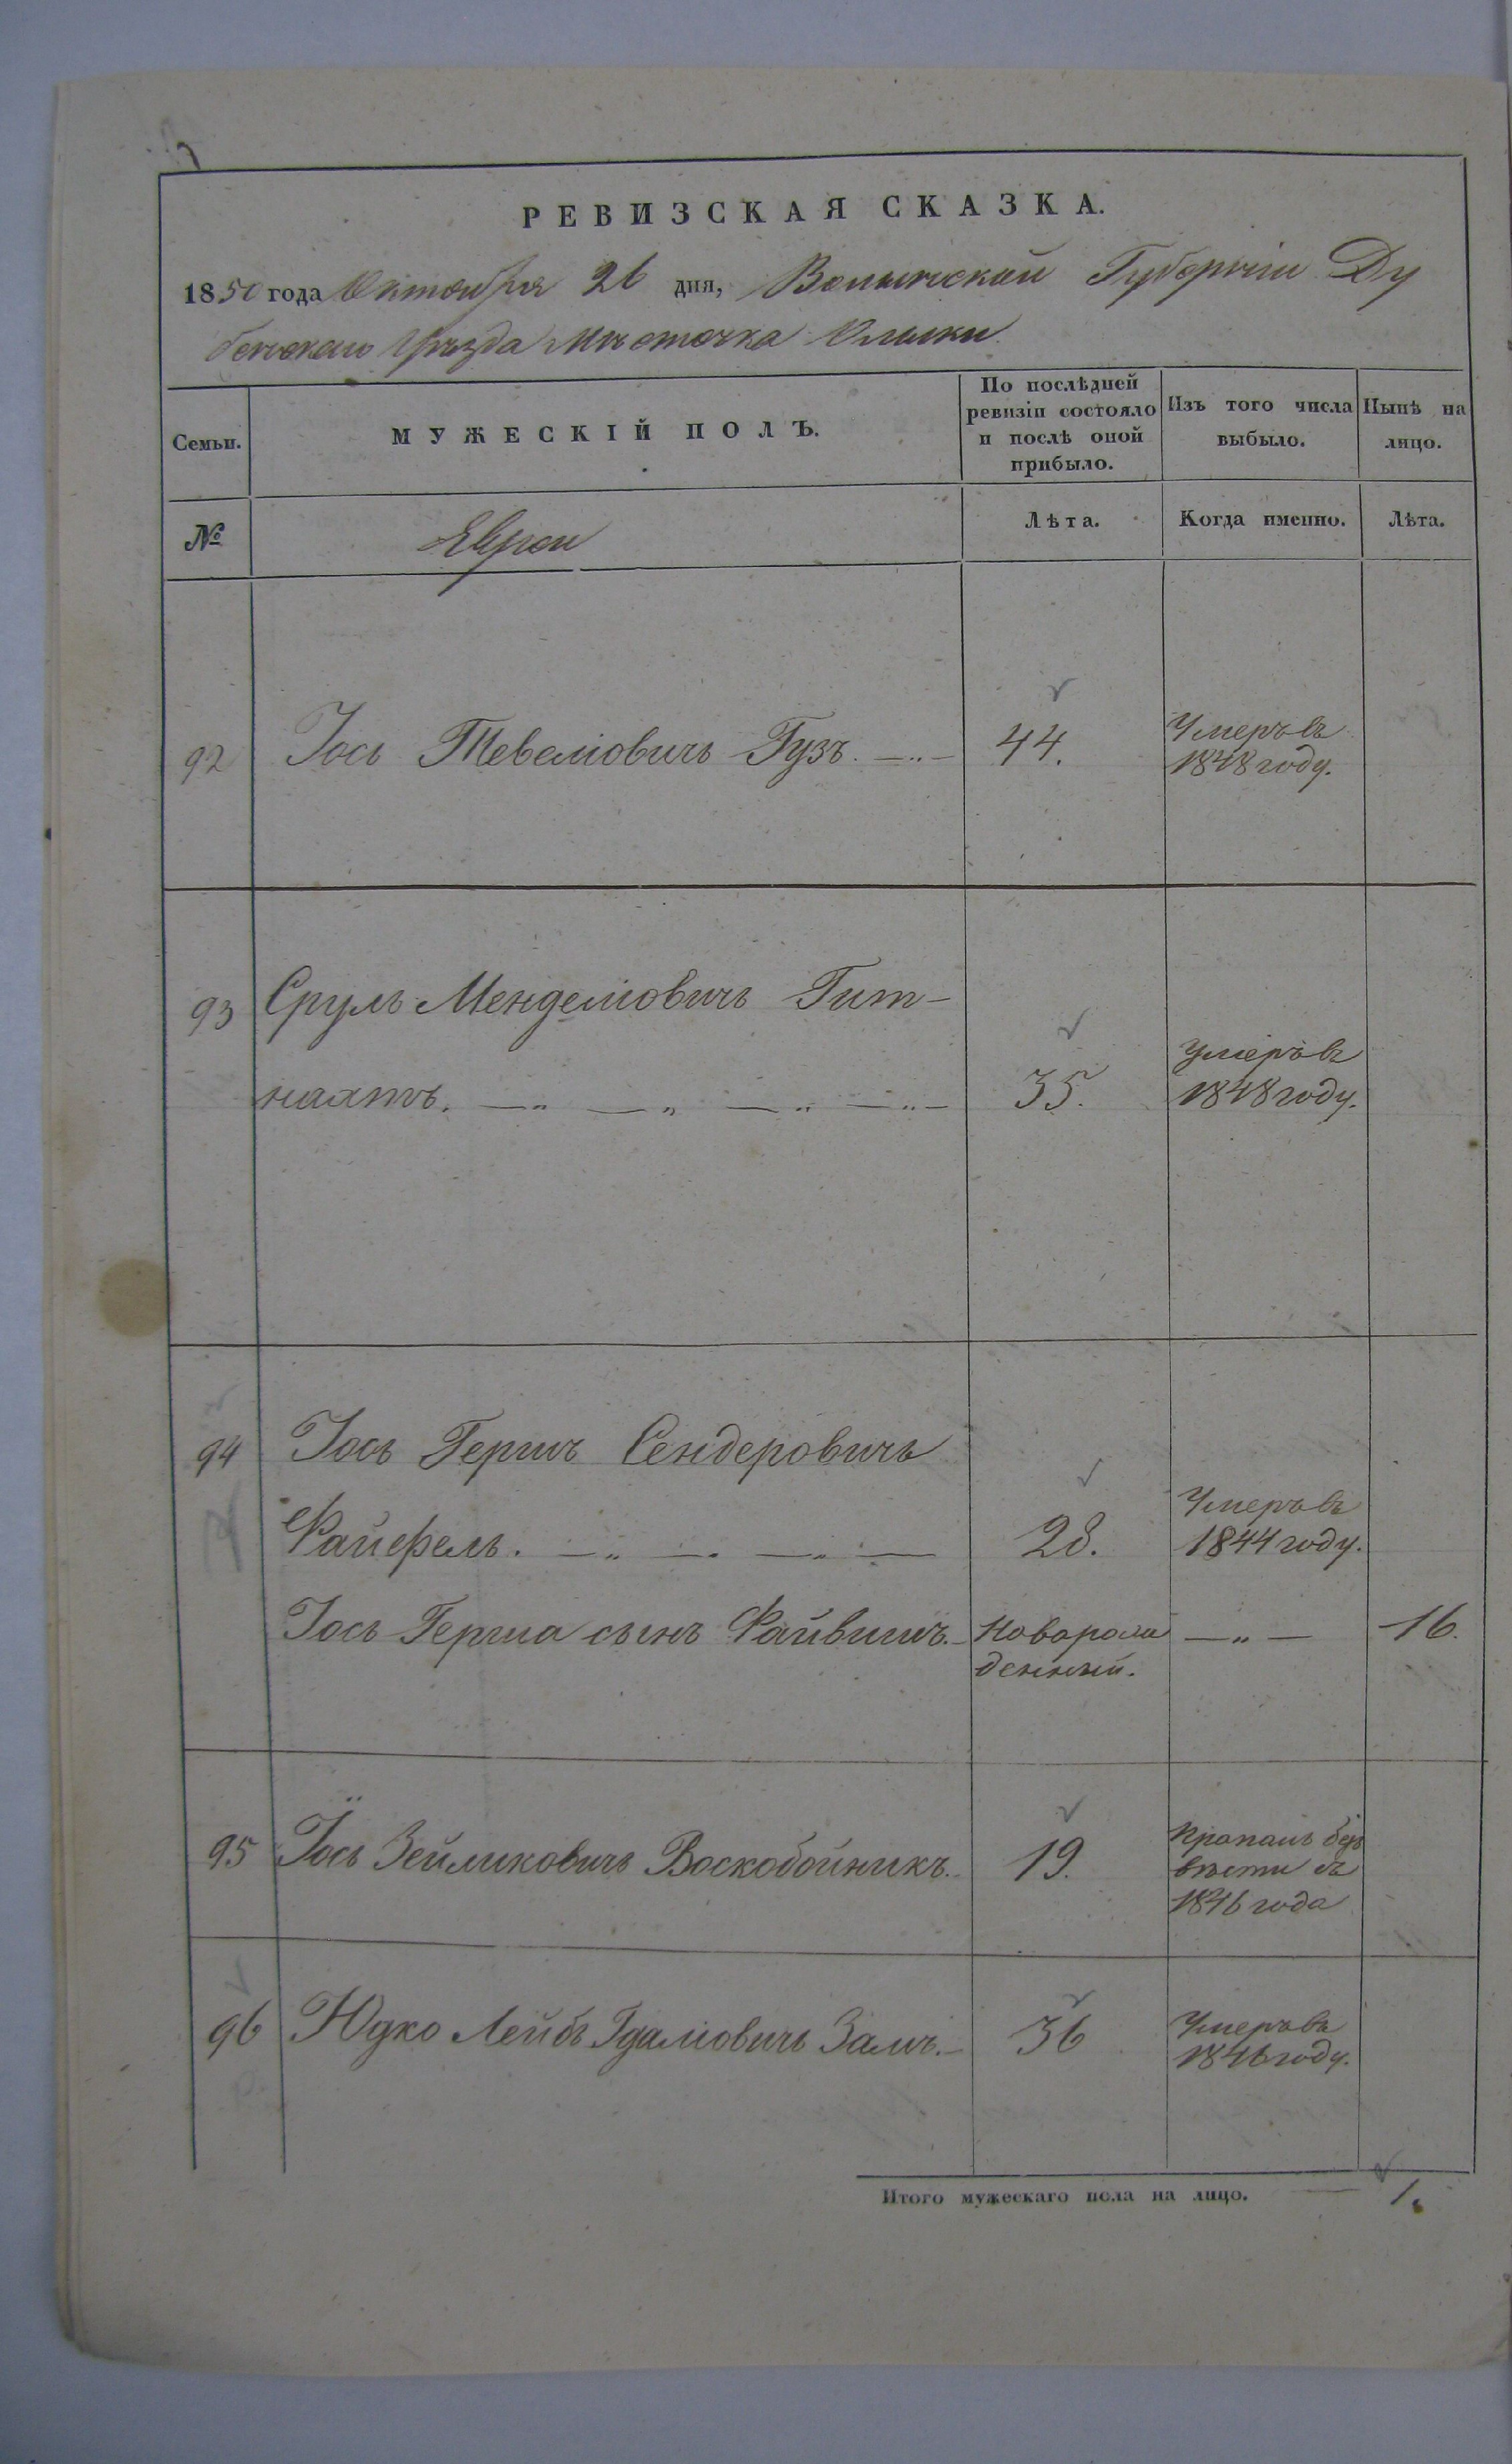 РЕВИЗСКАЯ СКАЗКА.
1850 года Октября 26 дня, Волынской Губерніи Ду
бенскаго Уѣзда Мѣстечка Олыки
Семьи.
МУЖЕСКІЙ ПОЛЪ.
По послѣдней
ревизіи состояло
и послѣ оной
прибыло.
Изъ того числа
выбыло.
Нынѣ на
лицо.
№
Евреи
Лѣта.
Когда именно.
Лѣта.
92 Іось Тевеліовичь Гузъ. 44. Умеръ въ
1848 году.
93 Сруль Менделіовичь Гит-
нахтъ. 35. Умеръ въ
1848 году.
94 Іось Гершъ Сендеровичь
Файфель. 28. Умеръ въ
1844 году.
Іось Герша сынъ Файвишъ. Новорож
денный. 16.
95 Іось Зейликовичь Воскобойникъ. 19. Пропалъ безъ
вѣсти съ
1846 года
96 Юдко Лейбъ Гдаліовичь Залцъ. 36 Умеръ въ
1846 году.
Итого мужескаго пола на лицо. 1.